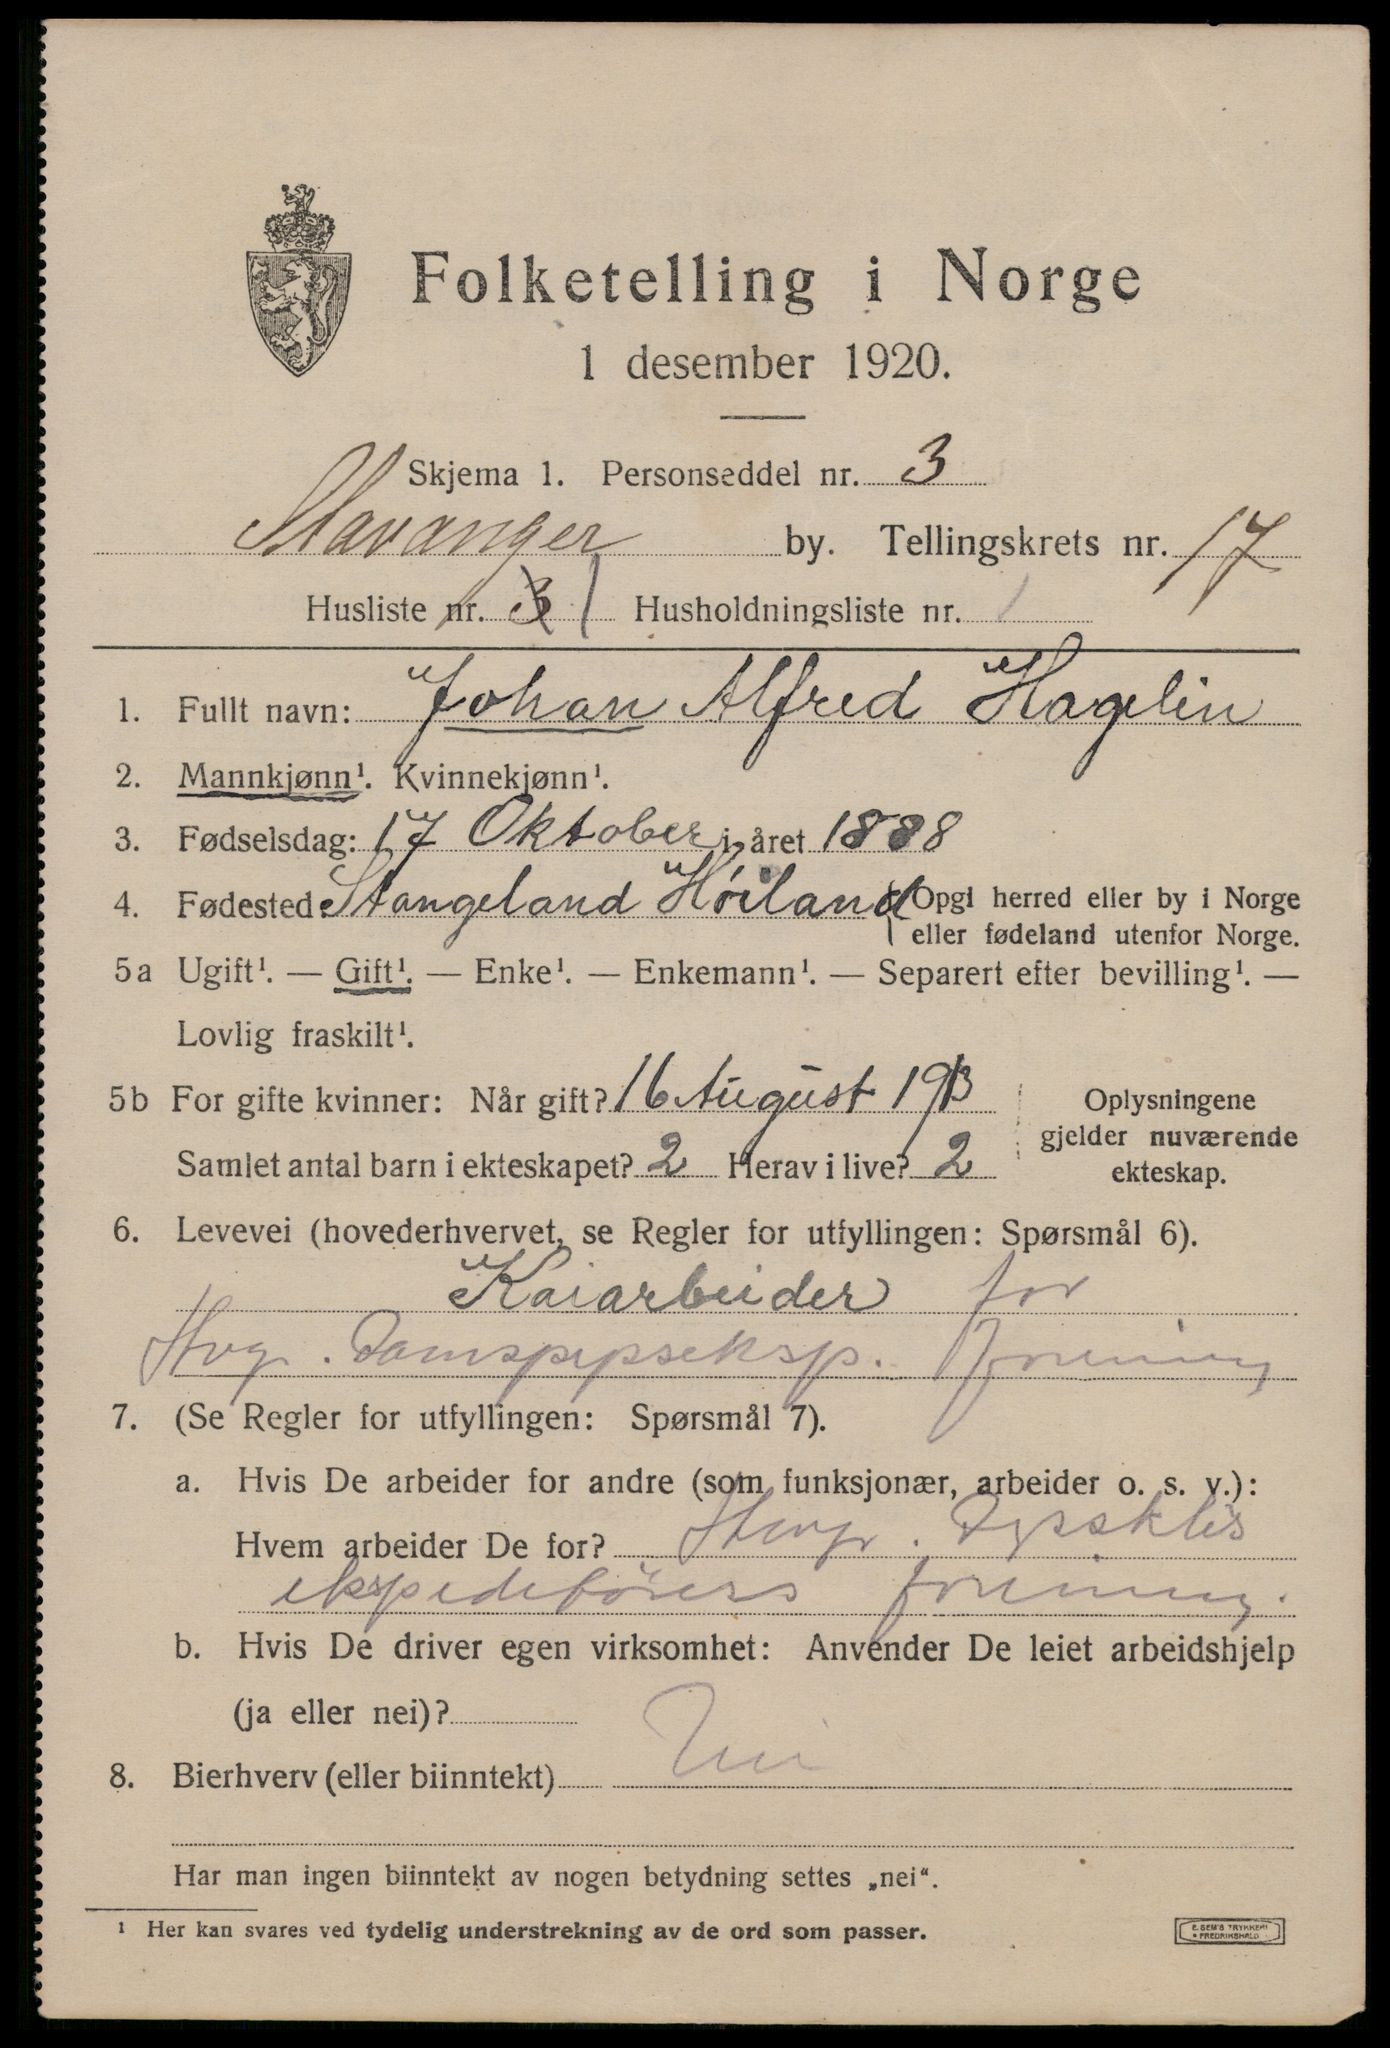 Folketelling i Norge
1 desember 1920.
Skjema 1. Personseddel nr. 3
Stavanger by. Tellingskrets nr. 17
Husliste nr. 3 1 Husholdningsliste nr. 1
1. Fullt navn: Johan Alfred Hagelin
2. Mannkjønn¹. Kvinnekjønn¹.
3. Fødselsdag: 17 Oktober i året 1888
4. Fødested Stangeland Höiland Opgi herred eller by i Norge
eller fødeland utenfor Norge.
5a Ugift¹. — Gift¹. — Enke¹. — Enkemann¹. — Separert efter bevilling¹. —
Lovlig fraskilt¹.
5b For gifte kvinner: Når gift? 16 August 1913
Samlet antal barn i ekteskapet? 2 Herav i live? 2
Oplysningene
gjelder nuværende
ekteskap.
6. Levevei (hovederhvervet, se Regler for utfyllingen: Spørsmål 6).
Kaiarbeider for
Stvgr. Damspipseksp. forening
7. (Se Regler for utfyllingen: Spørsmål 7).
a. Hvis De arbeider for andre (som funksjonær, arbeider o. s. v.):
Hvem arbeider De for? Stvgr.
ekspeditörers forening.
b. Hvis De driver egen virksomhet: Anvender De leiet arbeidshjelp
(ja eller nei)?
8. Bierhverv (eller biinntekt) Nei
Har man ingen biinntekt av nogen betydning settes „nei“.
¹ Her kan svares ved tydelig understrekning av de ord som passer.
E. SEM'S TRYKKERI
FREDRIKSHALD